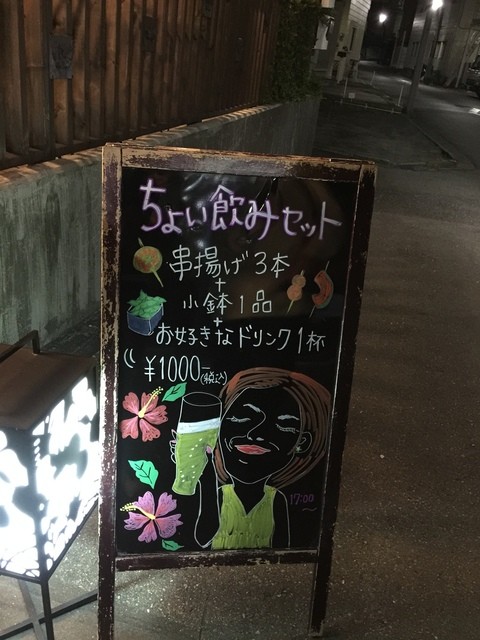 ちょい飲みセット
串揚げ3本
+
小鉢1品
+
お好きなドリンク1杯
¥1000-(税込)
17:00
~